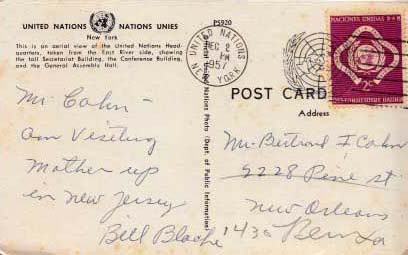 UNITED NATIONS NATIONS UNIES
New York
This is an aerial view of the United Nations Head-
quarters, taken from the East River side, showing
the tall Secretariat Building, the Conference Building,
and the General Assembly Hall.
PS920
UNITED NATIONS
DEC 2
PM
1957
NEW YORK
NACIONES UNIDAS
2c
United Nations Photo (Dept. of Public Information)
POST CARD
Address
Mr. Cahn –
am visiting
Mother up
in New Jersey
Bill
Mr. Bertrand I Cahn
2228 Pine st
New Orleans
1430